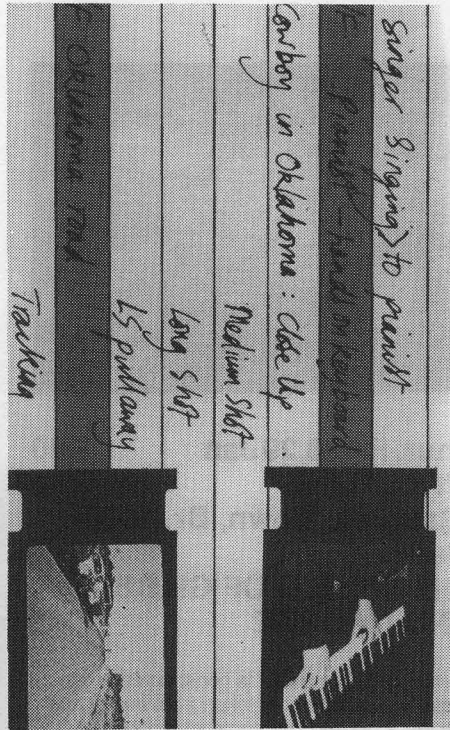 Singer Singing > to pianist
E pianist - hands on keyboard
Cowboy in Oklahoma : Close Up
Medium Shot
Long Shot
LS pull away
F Oklahoma road
Tracking